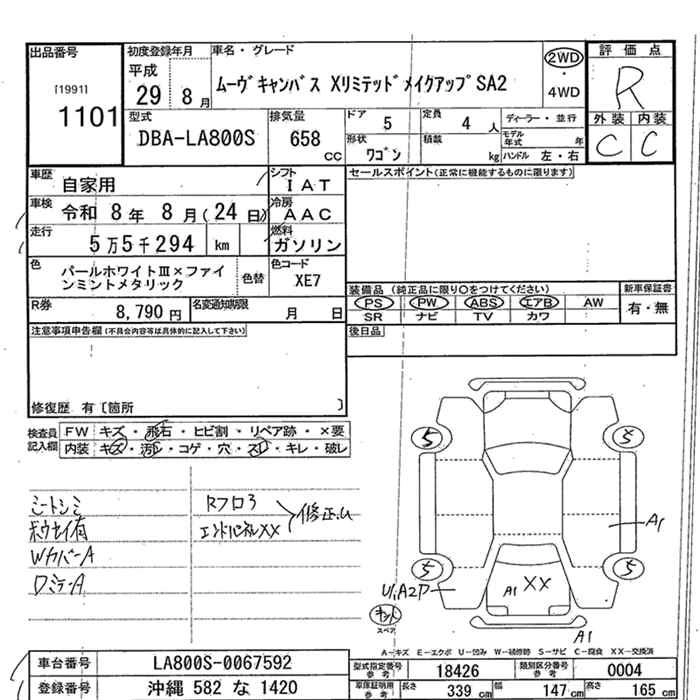 出品番号
[1991]
1101
初度登録年月
平成
29 8月
車名・グレード
ムーヴキャンバス Xリミテッドメイクアップ SA2
2WD
・
4WD
評価点
R
外装 内装
C C
型式
DBA-LA800S
排気量
658
CC
ドア 5
定員 4 人
形状 ワゴン
積載 kg
ディーラー・並行
モデル年式 年
ハンドル 左・右
車歴 自家用
シフト IAT
車検 令和 8年 8月(24日)
冷房 AAC
走行 5万5千294 km
燃料 ガソリン
色 パールホワイトⅢ×ファインミントメタリック
色替
色コード XE7
R券 8,790円
名変通知期限 月 日
セールスポイント(正常に機能するものに限ります)
装備品 (純正品に限り○をつけてください)
新車保証書
PS PW ABS エアB AW
SR ナビ TV カワ
有・無
後日品
注意事項申告欄(不具合内容等は具体的に記入して下さい)
修復歴 有〔箇所 〕
検査員記入欄
FW キズ・飛石・ヒビ割・リペア跡・×要
内装 キズ・汚レ・コゲ・穴・スレ・キレ・破レ
シートシミ
ボウセイ有
WカバーA
Rフロ3
エンドパネルXX
修正ム
5 5
5 5
A1
A1 XX
A2P
A1
スペア
A-キズ E-エクボ U-凹み W-補修跡 S-サビ C-腐食 XX-交換済
車台番号 LA800S-0067592
登録番号 沖縄 582 な 1420
型式指定番号 参考 18426
類別区分番号 参考 0004
車庫証明用 参考 長さ 339 cm 幅 147 cm 高さ 165 cm